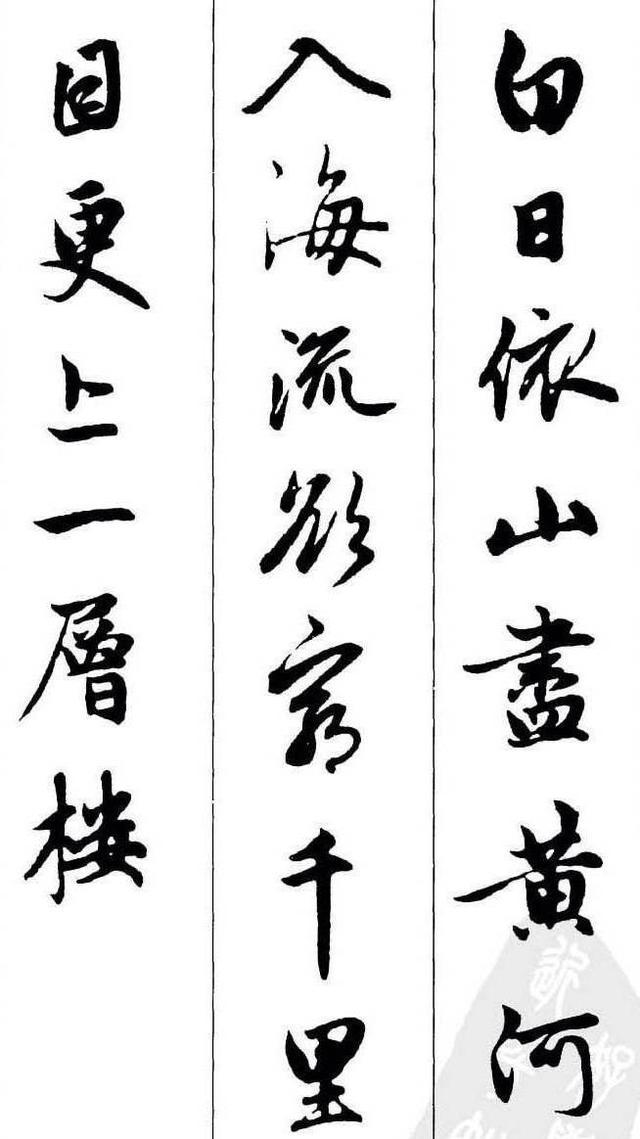 白日依山盡黄河
入海流欲窮千里
目更上一層楼